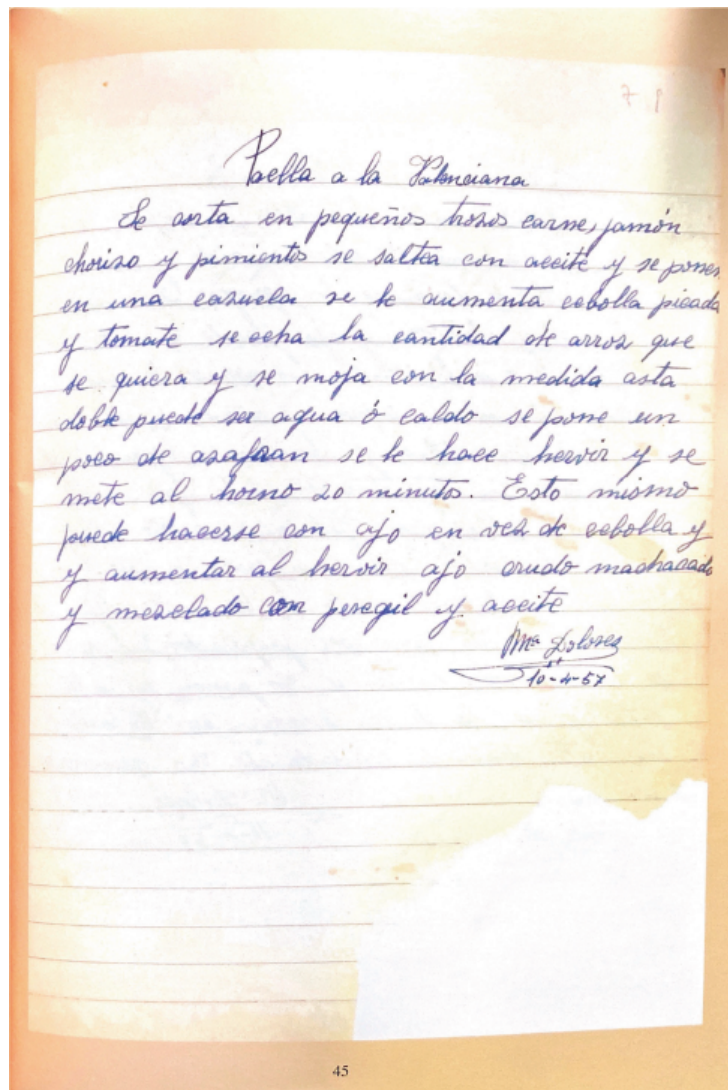 Paella a la Valenciana
Se corta en pequeños trozos carne, jamón
chorizo y pimientos se saltea con aceite y se ponen
en una cazuela se le aumenta cebolla picada
y tomate se echa la cantidad de arroz que
se quiera y se moja con la medida asta
doble puede ser agua ó caldo se pone un
poco de azafran se le hace hervir y se
mete al horno 20 minutos. Esto mismo
puede hacerse con ajo en vez de cebolla y
y aumentar al hervir ajo crudo machacado
y mezclado con peregil y aceite
Mª Dolores
10-4-57
45